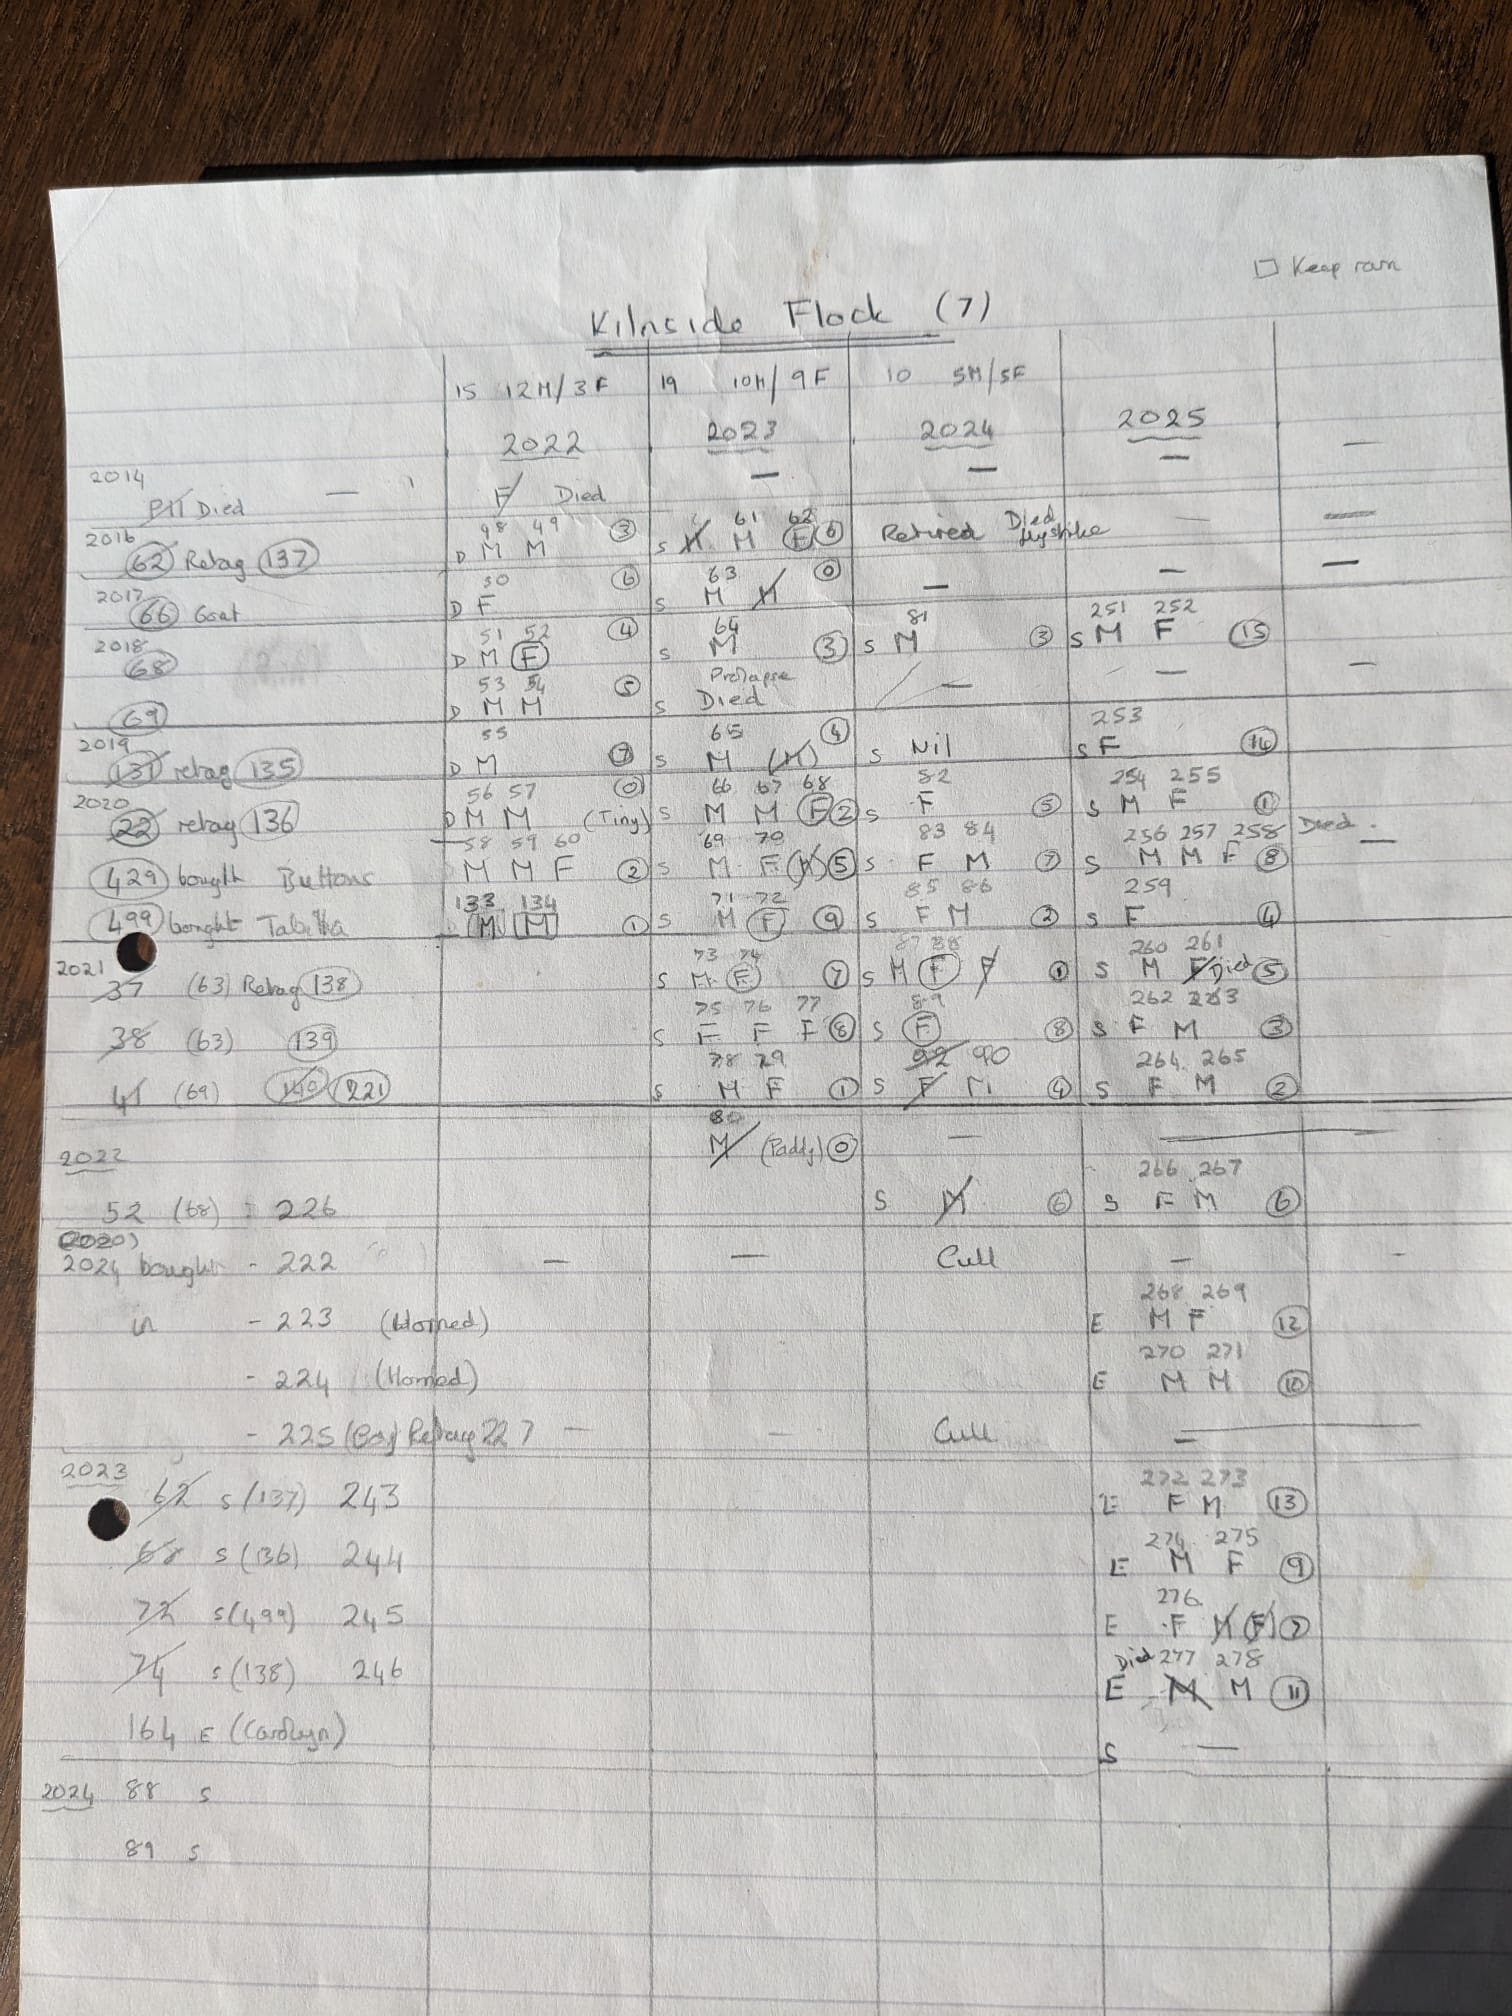 □ Keep ram
Kilnside Flock (7)
15 12M/3F 19 10M/9F 10 5M/5F
2022 2023 2024 2025
2014 — — — —
Died — F Died
2016 48 49 61 62
62 Retag 137 D M M 3 S M M F 6 Retired Died flystrike — —
2017 50 63
66 Goat D F 6 S M M 0 — — —
2018 51 52 64 81 251 252
68 D M F 4 S M 3 S M 3 S M F 15
53 54 Prolapse
69 D M M 5 S Died — — —
2019 55 65 253
131 retag 135 D M 7 S M (M) 4 S Nil S F 14
2020 56 57 66 67 68 82 254 255
22 retag 136 D M M (Tiny) 0 S M M F 2 S F 5 S M F 1
58 59 60 69 70 83 84 256 257 258 Died
429 bought Buttons M M F 2 S M F M 5 S F M 7 S M M F 8 —
133 134 71 72 85 86 259
499 bought Tabitha M M 1 S M F 9 S F M 2 S F 4
2021 73 74 87 88 260 261
37 (63) Retag 138 S M F 7 S M F F 1 S M F Died 5
75 76 77 89 262 263
38 (63) 139 S F F F 8 S F 8 S F M 3
78 79 92 90 264 265
41 (69) 140 221 S M F 1 S F M 4 S F M 2
80
2022 M (Paddy) 0 — —
266 267
52 (68) : 226 S M 6 S F M 6
(2020)
2024 bought - 222 — — Cull — -
268 269
in - 223 (Horned) E M F 12
270 271
- 224 (Horned) E M M 10
- 225 (Boy) Retag 227 — — Cull —
2023 272 273
62 S (137) 243 E F M 13
274 275
68 S (136) 244 E M F 9
276
72 S (499) 245 E F M F 7
Died 277 278
74 S (138) 246 E M M 11
164 E (Carolyn) S —
2024 88 S
89 S